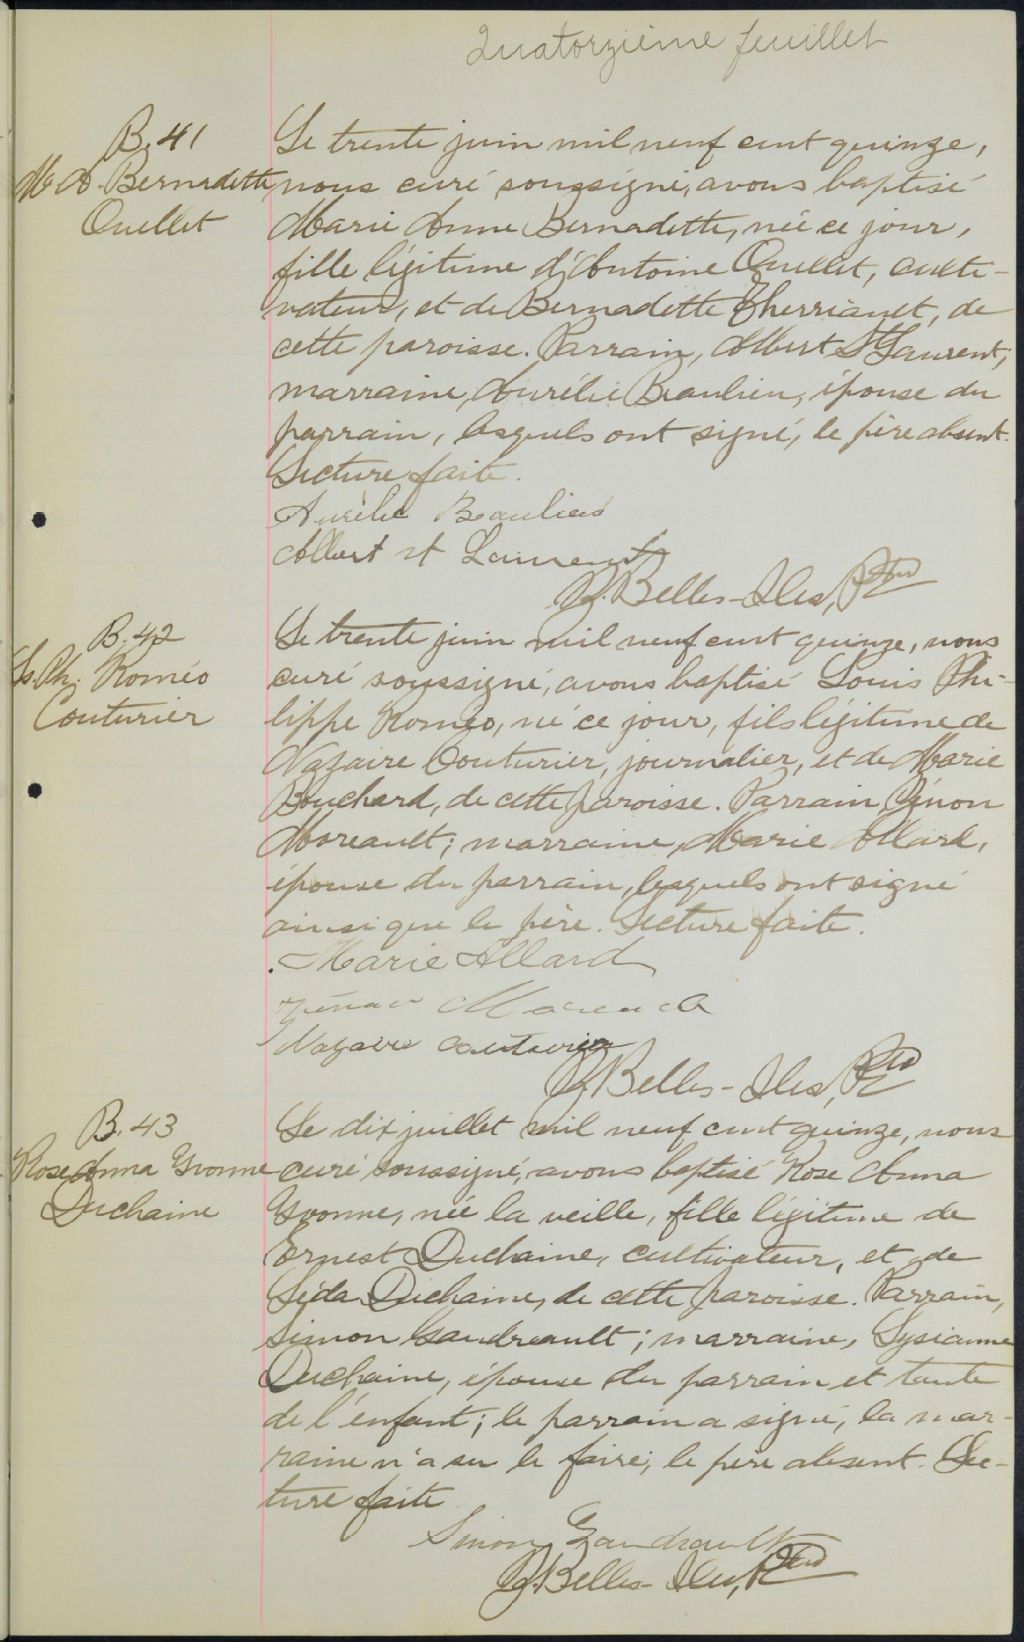 Quatorzième feuillet
B. 41
M. A. Bernadette
Ouellet
Le trente juin mil neuf cent quinze,
nous curé soussigné, avons baptisé
Marie Anne Bernadette, née ce jour,
fille légitime d'Antoine Ouellet, culti-
vateur, et de Bernadette Therriault, de
cette paroisse. Parrain, Albert St Laurent;
marraine, Aurélie Beaulieu, épouse du
parrain, lesquels ont signé, le père absent.
Lecture faite.
Aurélie Beaulieu
Albert st Laurent
J. Belles-Isles, Ptre
B. 42
Ls. Ph. Roméo
Couturier
Le trente juin mil neuf cent quinze, nous
curé soussigné, avons baptisé Louis Phi-
lippe Roméo, né ce jour, fils légitime de
Nazaire Couturier, journalier, et de Marie
Bouchard, de cette paroisse. Parrain, Zénon
Moreault; marraine, Marie Allard,
épouse du parrain, lesquels ont signé
ainsi que le père. Lecture faite.
Marie Allard
Nazaire Couturier
J. Belles-Isles, Ptre
B. 43
Rose Anna Yvonne
Duchaine
Le dix juillet mil neuf cent quinze, nous
curé soussigné, avons baptisé Rose Anna
Yvonne, née la veille, fille légitime de
Ernest Duchaine, cultivateur, et de
Léda Duchaine, de cette paroisse. Parrain,
Simon Gaudreault; marraine, Lysianne
Duchaine, épouse du parrain et tante
de l'enfant; le parrain a signé, la mar-
raine n'a su le faire, le père absent. Lec-
ture faite
Simon Gaudreault
J. Belles-Isles, Ptre